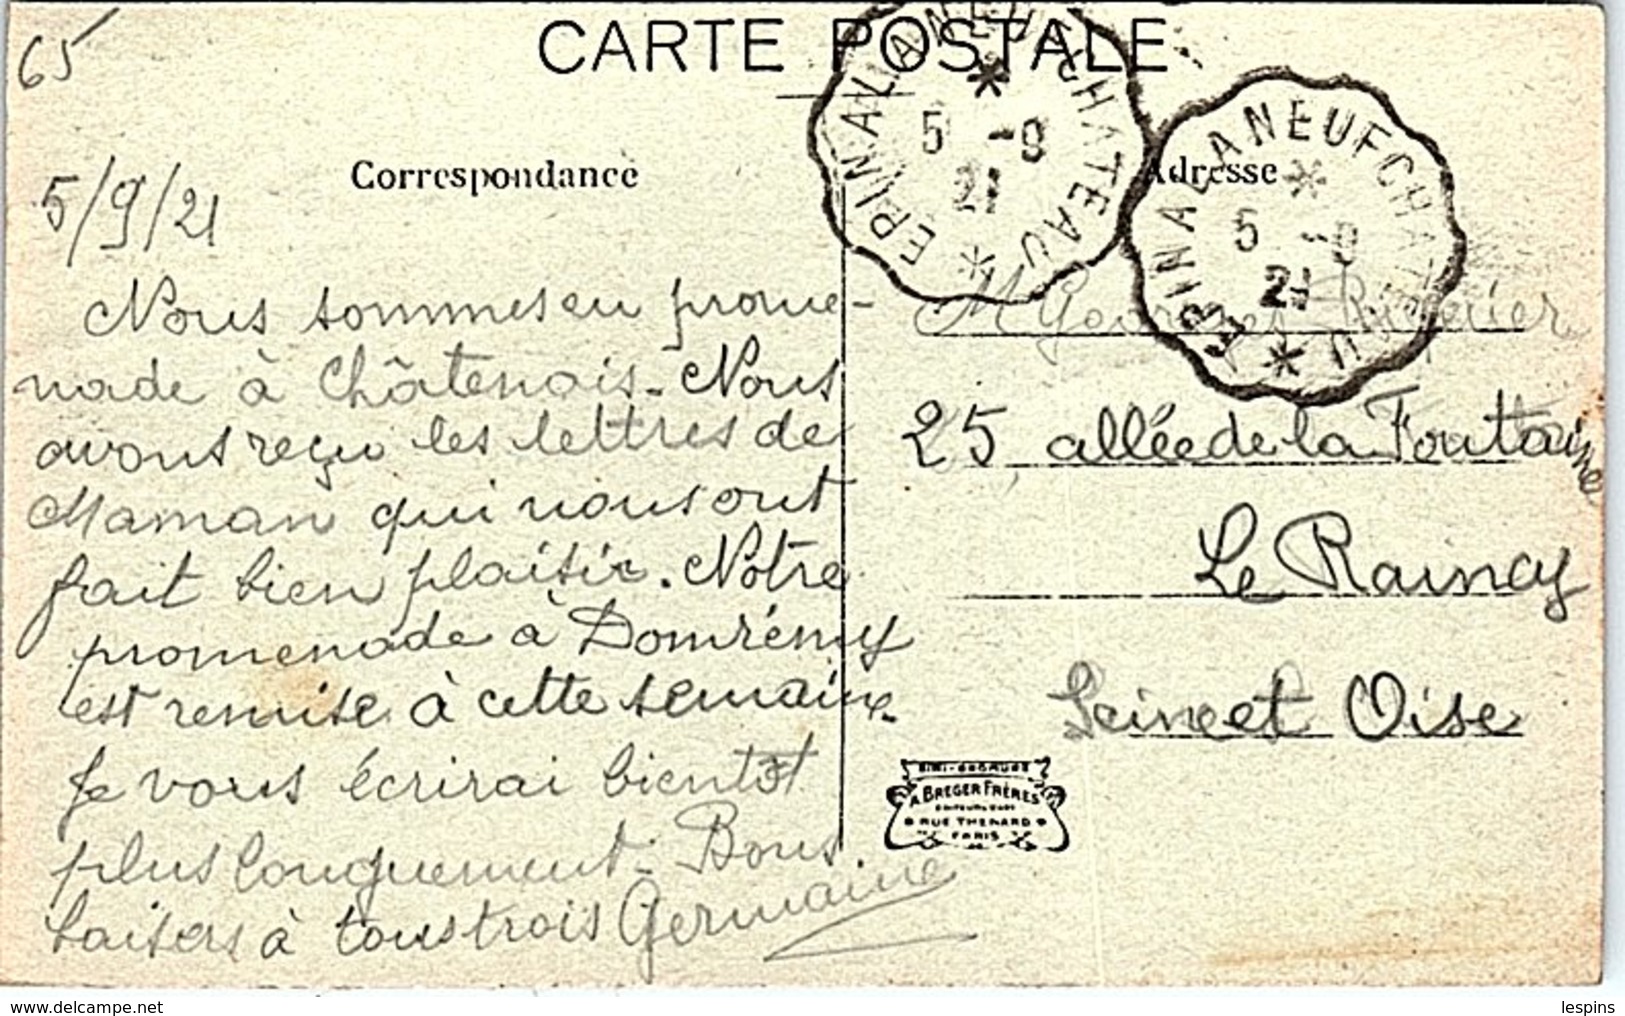 65
CARTE POSTALE
Correspondance
Adresse
EPINAL A NEUFCHATEAU
5 -9
21
EPINAL A NEUFCHATEAU
5 -9
21
5/9/21
Nous sommes en prome-
nade à Châtenois. Nous
avons reçu les lettres de
Maman qui nous ont
fait bien plaisir. Notre
promenade à Domrémy
est remise à cette semaine.
Je vous écrirai bientôt
plus longuement. Bons
baisers à tous trois Germaine
M Georges
25 allée de la Fontaine
Le Raincy
Seine et Oise
A. BREGER FRÈRES
RUE THENARD
PARIS
www.delcampe.net
lespins